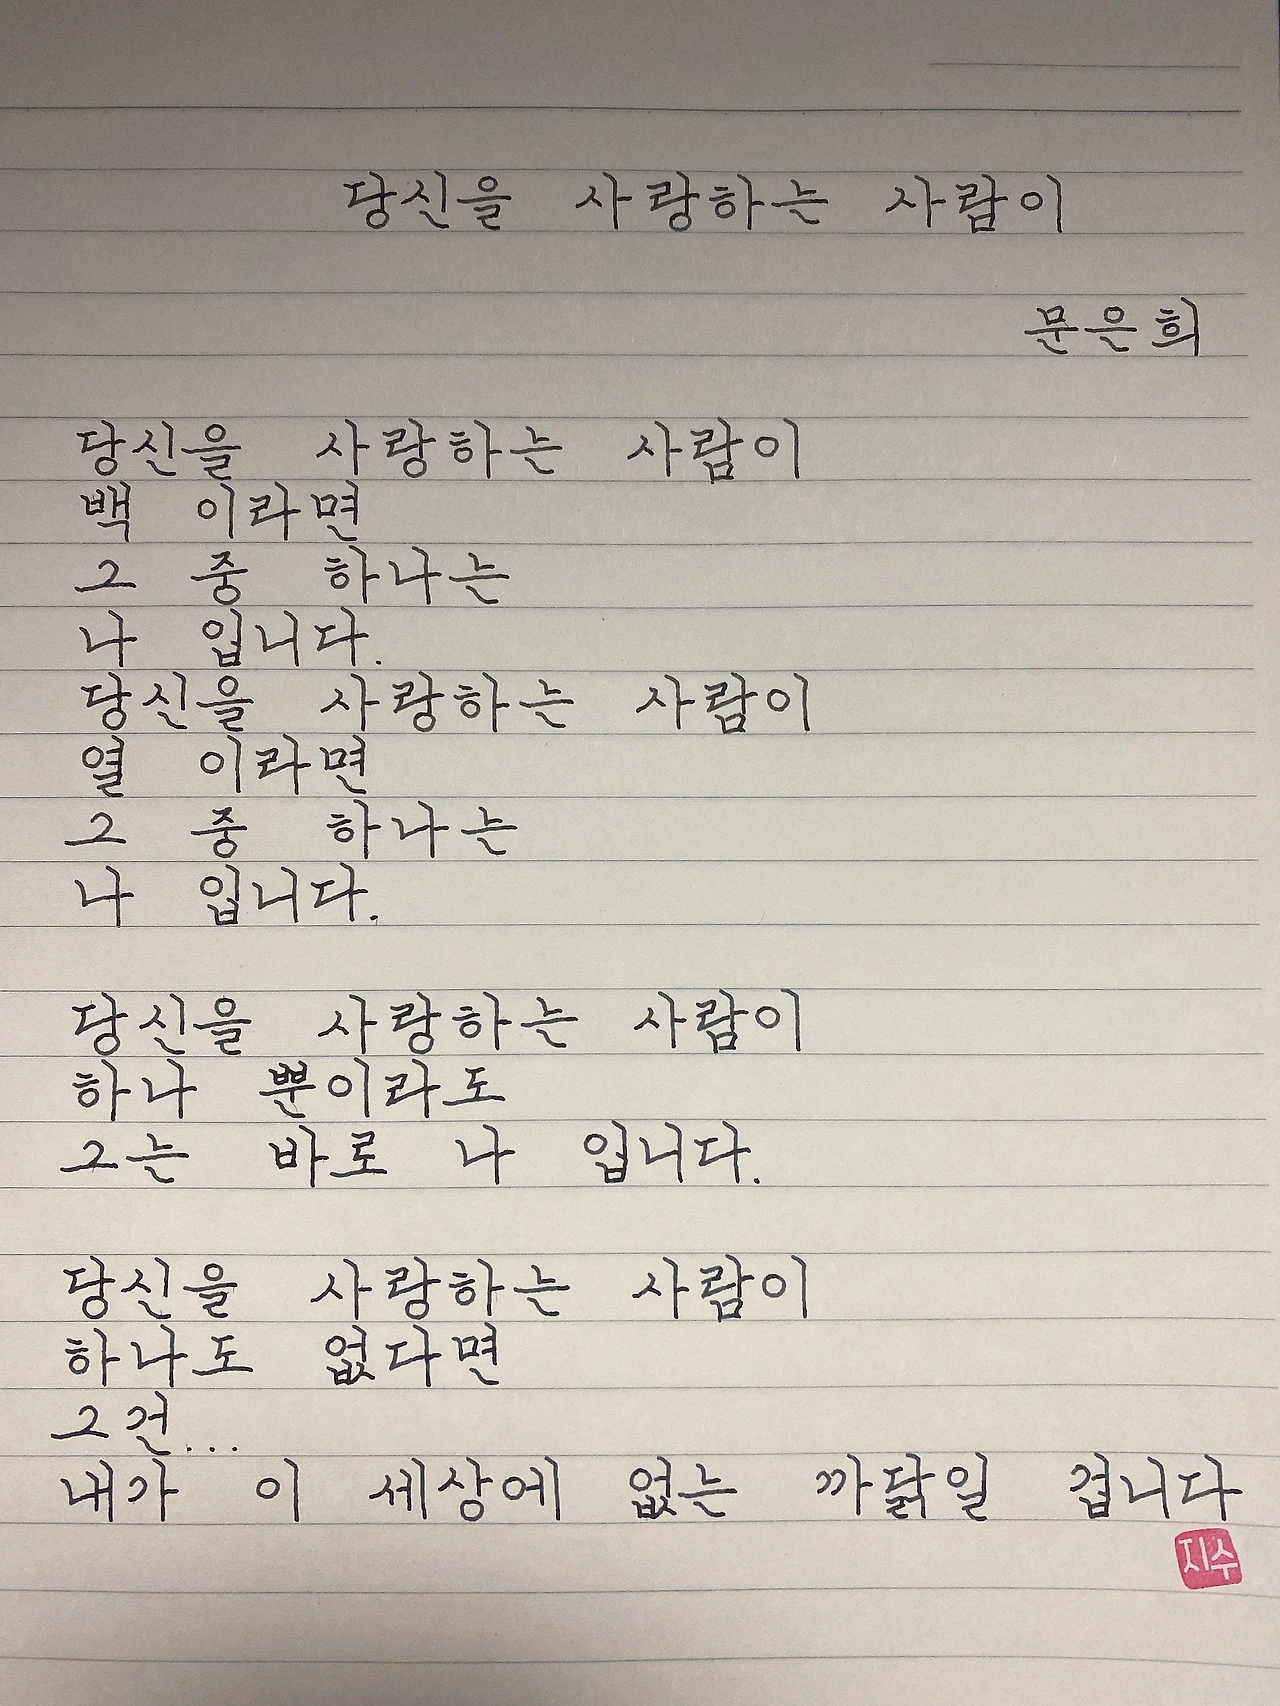 당신을 사랑하는 사람이
문은희
당신을 사랑하는 사람이
백 이라면
그 중 하나는
나 입니다.
당신을 사랑하는 사람이
열 이라면
그 중 하나는
나 입니다.
당신을 사랑하는 사람이
하나 뿐이라도
그는 바로 나 입니다.
당신을 사랑하는 사람이
하나도 없다면
그건...
내가 이 세상에 없는 까닭일 겁니다
지수